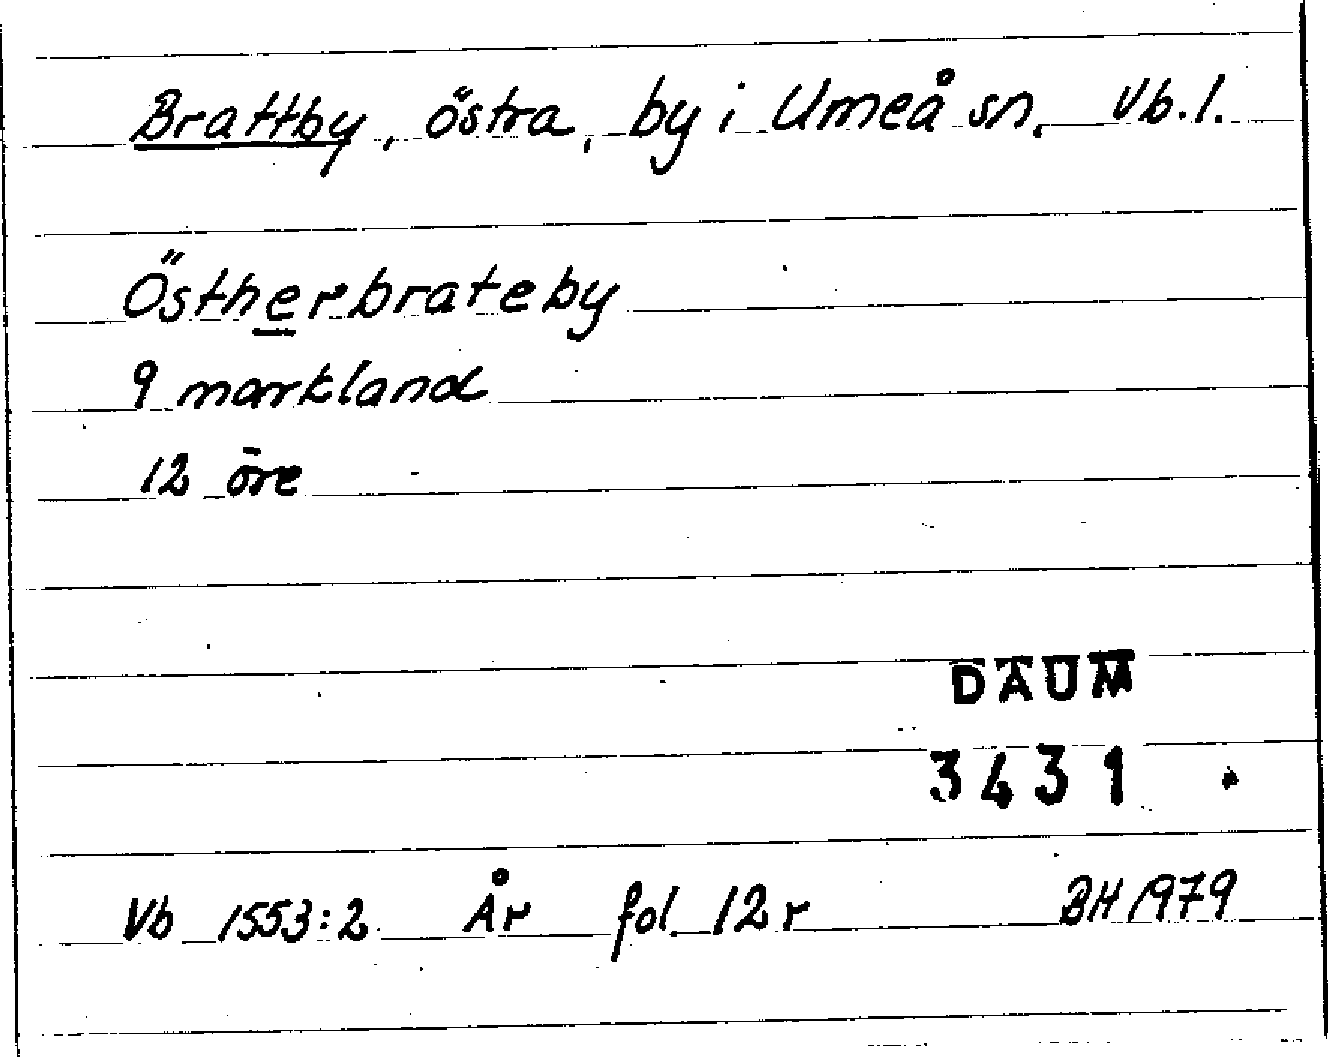 Brattby, östra, by i Umeå sn, Vb.l.
Östherbrateby
9 markland
12 öre
DAUM
3431
Vb 1553:2 År fol 12r BH 1979